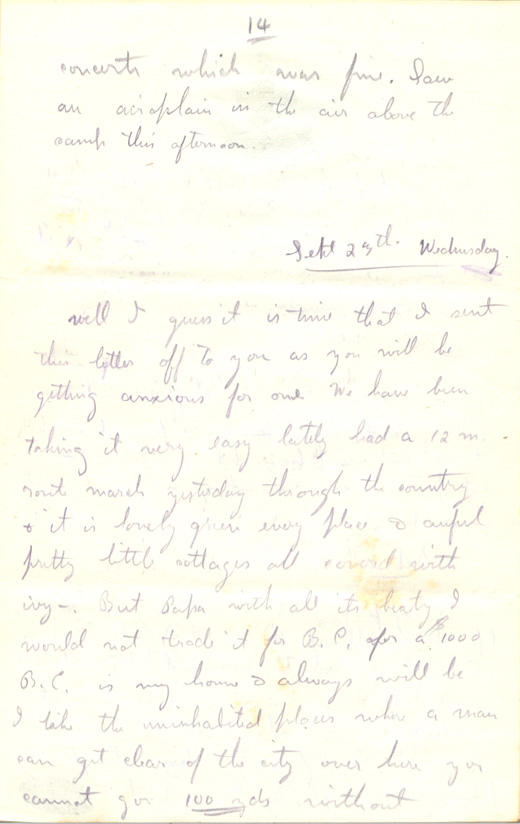 14
concerts which was fine. Saw
an airoplain in the air above the
camp this afternoon.
Sept 29th. Wednesday.
well I guess it is time that I sent
this letter off to you as you will be
getting anxious for one We have been
taking it very easy lately had a 12 m.
rout march yesterday through the country
& it is lovely green every place & awful
pretty little cottages all coverd with
ivy-. But Papa with all its beaty I
would not trade it for B.C. for a $1000
B.C. is my home & always will be
I like the uninhabited places where a man
can get clear of the city over here you
cannot go 100 yds without